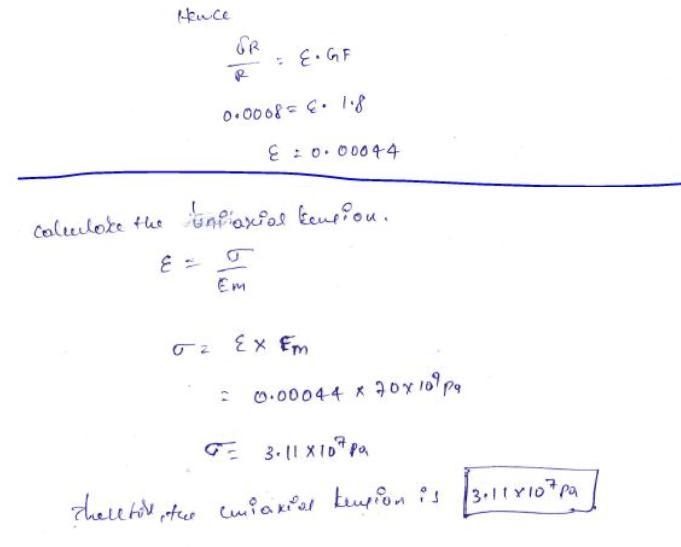 Hence
δR/R = ε·GF
0.0008 = ε· 1.8
ε = 0.00044
calculate the uniaxial tension.
ε = σ/Em
σ = ε × Em
= 0.00044 × 70×10⁹ pa
σ = 3.11×10⁷ pa
Therefore, the uniaxial tension is 3.11×10⁷ pa